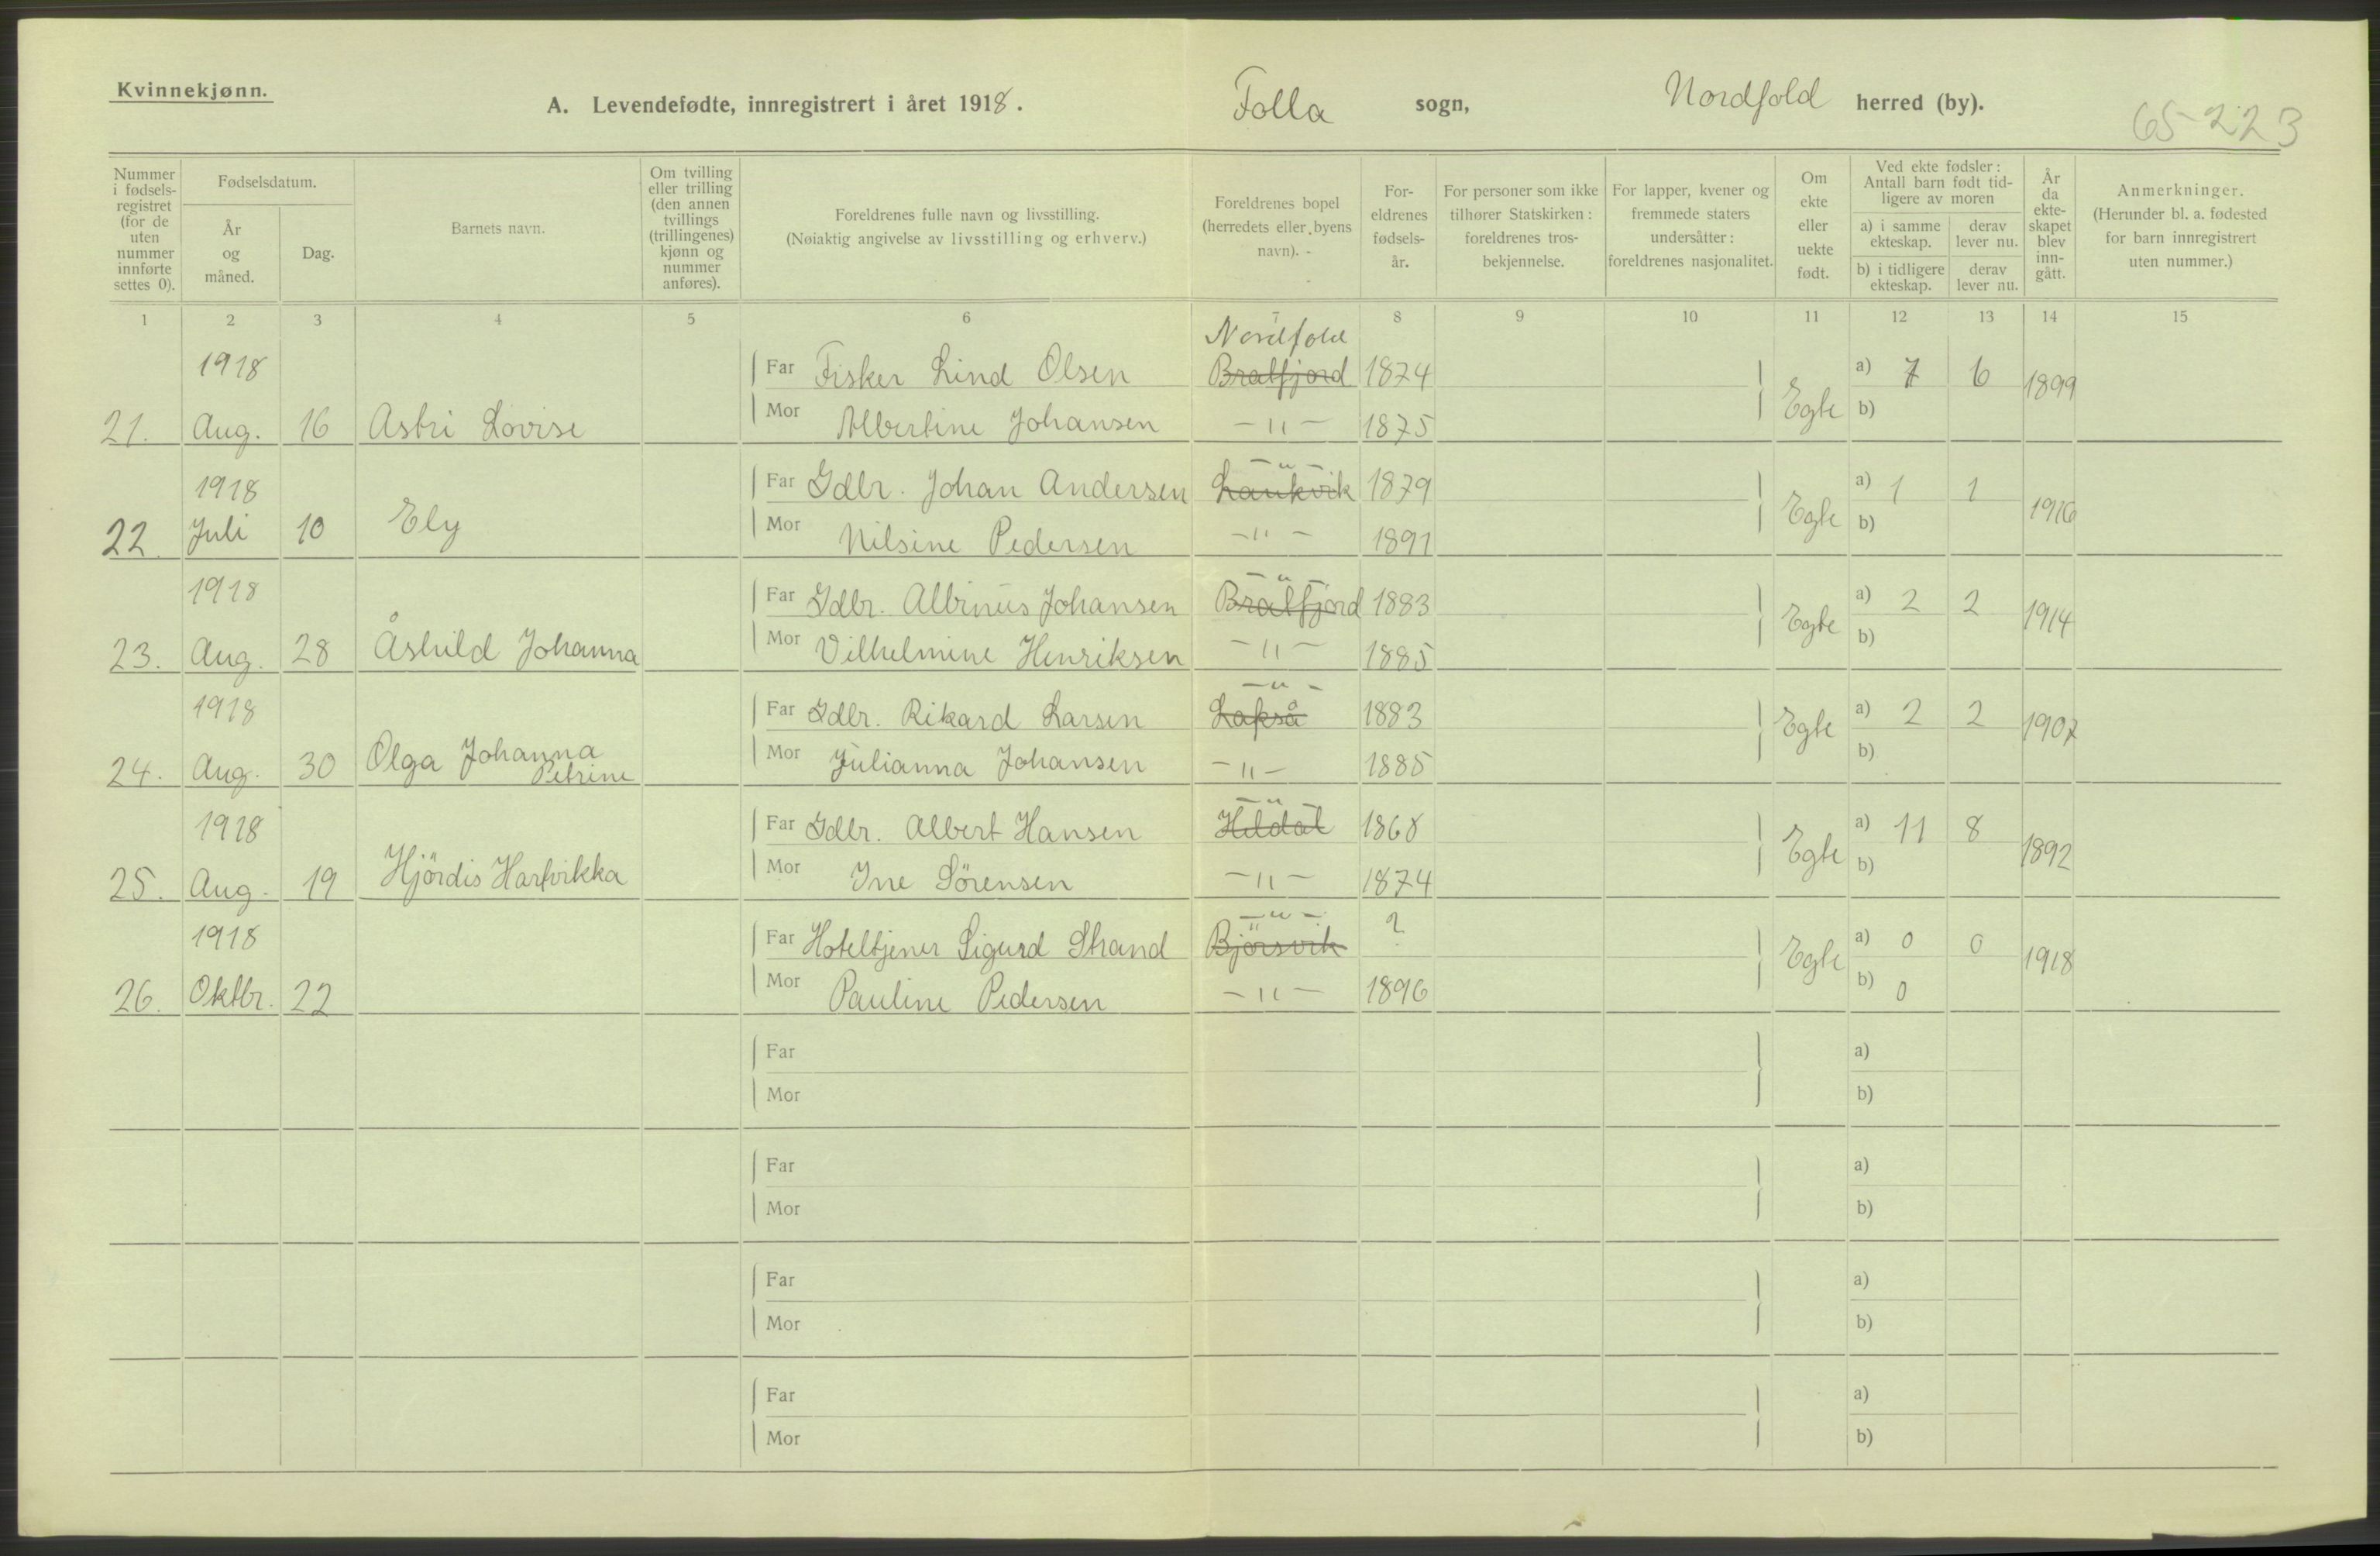 Kvinnekjønn.
A. Levendefødte, innregistrert i året 1918.
Folla sogn, Nordfold herred (by).
65-223
Nummer i fødsels-registret (for de uten nummer innførte settes 0).
Fødselsdatum.
År og måned.
Dag.
Barnets navn.
Om tvilling eller trilling (den annen tvillings (trillingenes) kjønn og nummer anføres).
Foreldrenes fulle navn og livsstilling.
(Nøiaktig angivelse av livsstilling og erhverv.)
Foreldrenes bopel (herredets eller byens navn).
For-eldrenes fødsels-år.
For personer som ikke tilhører Statskirken: foreldrenes tros-bekjennelse.
For lapper, kvener og fremmede staters undersåtter: foreldrenes nasjonalitet.
Om ekte eller uekte født.
Ved ekte fødsler: Antall barn født tid-ligere av moren
a) i samme ekteskap.
derav lever nu.
b) i tidligere ekteskap.
derav lever nu.
År da ekte-skapet blev inn-gått.
Anmerkninger.
(Herunder bl. a. fødested for barn innregistrert uten nummer.)
1 2 3 4 5 6 7 8 9 10 11 12 13 14 15
Nordfold
1918 Far Fisker Lind Olsen Bratfjord 1874 a) 7 6 1899
21. Aug. 16 Astri Lovise Mor Albertine Johansen -"- 1875 Egte b)
-"-
1918 Far Gdbr. Johan Andersen Laukvik 1879 a) 1 1 1916
22. Juli 10 Ely Mor Nilsine Pedersen -"- 1891 Egte b)
-"-
1918 Far Gdbr. Albinus Johansen Bratfjord 1883 a) 2 2 1914
23. Aug. 28 Åshild Johanna Mor Vilhelmine Henriksen -"- 1885 Egte b)
-"-
1918 Far Gdbr. Rikard Larsen Lakså 1883 a) 2 2 1907
24. Aug. 30 Olga Johanna Petrine Mor Julianna Johansen -"- 1885 Egte b)
-"-
1918 Far Gdbr. Albert Hansen Heldal 1868 a) 11 8 1892
25. Aug. 19 Hjördis Hartvikka Mor Ine Sörensen -"- 1874 Egte b)
-"-
1918 Far Hoteltjener Sigurd Strand Björsvik ? a) 0 0 1918
26. Oktbr. 22 Mor Pauline Pedersen -"- 1896 Egte b) 0
Far a)
Mor b)
Far a)
Mor b)
Far a)
Mor b)
Far a)
Mor b)